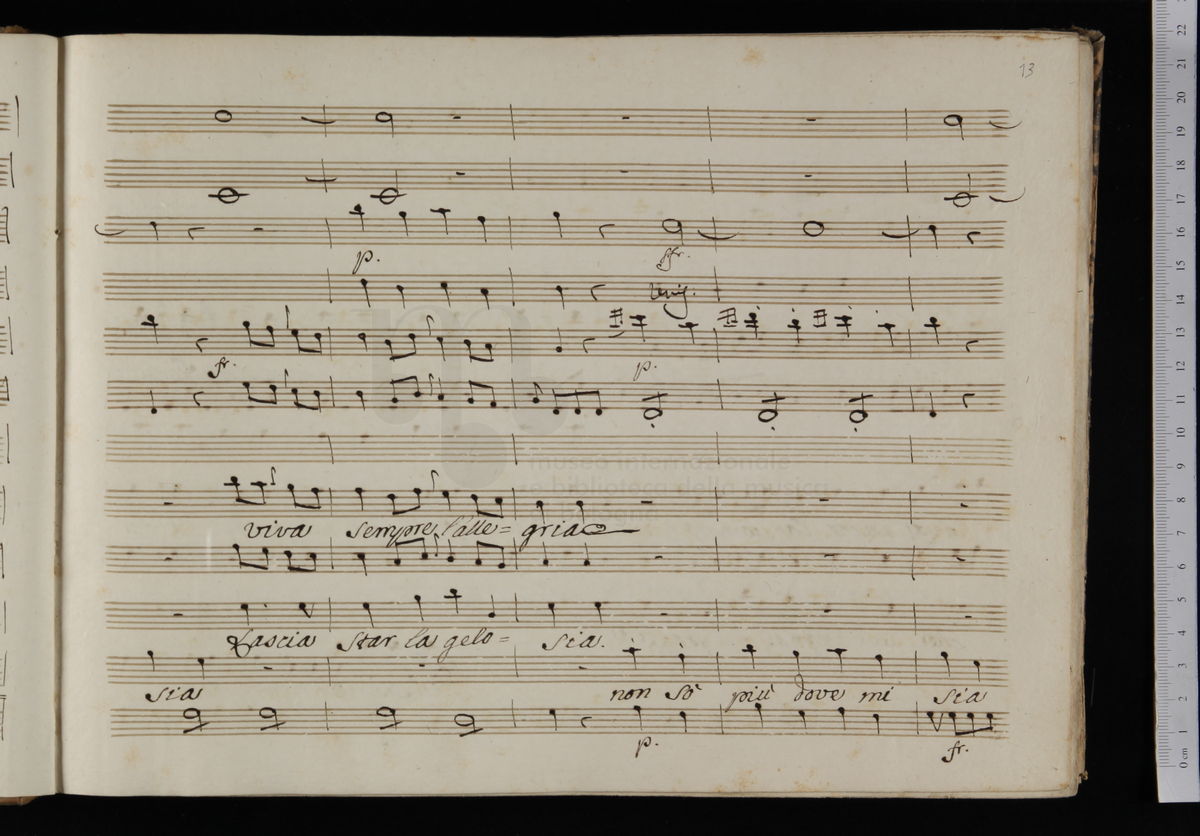 13
p. sfr.
Unis.
fr. p.
museo internazionale
e biblioteca della musica
viva sempre l'alle= gria
Lascia star la gelo= sia.
sia non sò più dove mi sia
p. fr.
22
21
20
19
18
17
16
15
14
13
12
11
10
9
8
7
6
5
4
3
2
1
0 cm